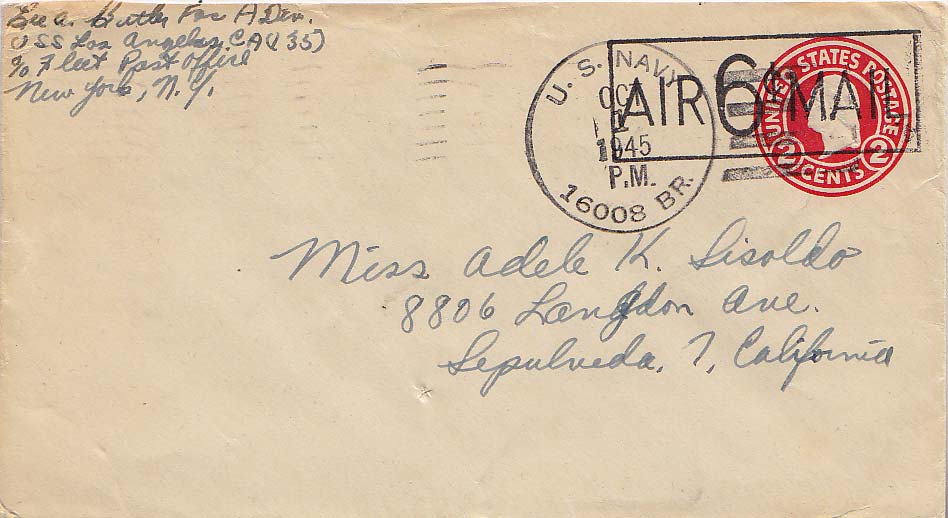 Butler Fox A Div.
USS Los Angeles, CA (135)
c/o Fleet Post Office
New York, N.Y.
U. S. NAVY
OCT
1945
P.M.
16008 BR.
AIR 6¢ MAIL
UNITED STATES POSTAGE
2 CENTS 2
Miss Adele K. Sisoldo
8806 Langdon Ave.
Sepulveda, 7, California